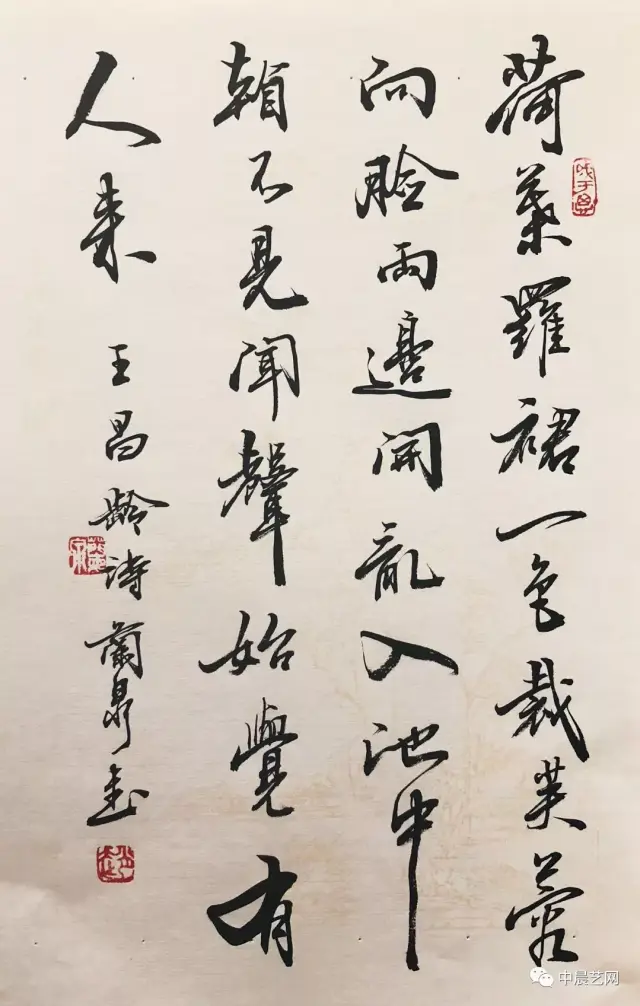 荷葉羅裙一色裁芙蓉
向臉兩邊開亂入池中
不見聞聲始覺有
人来
王昌齡詩
中晨艺网